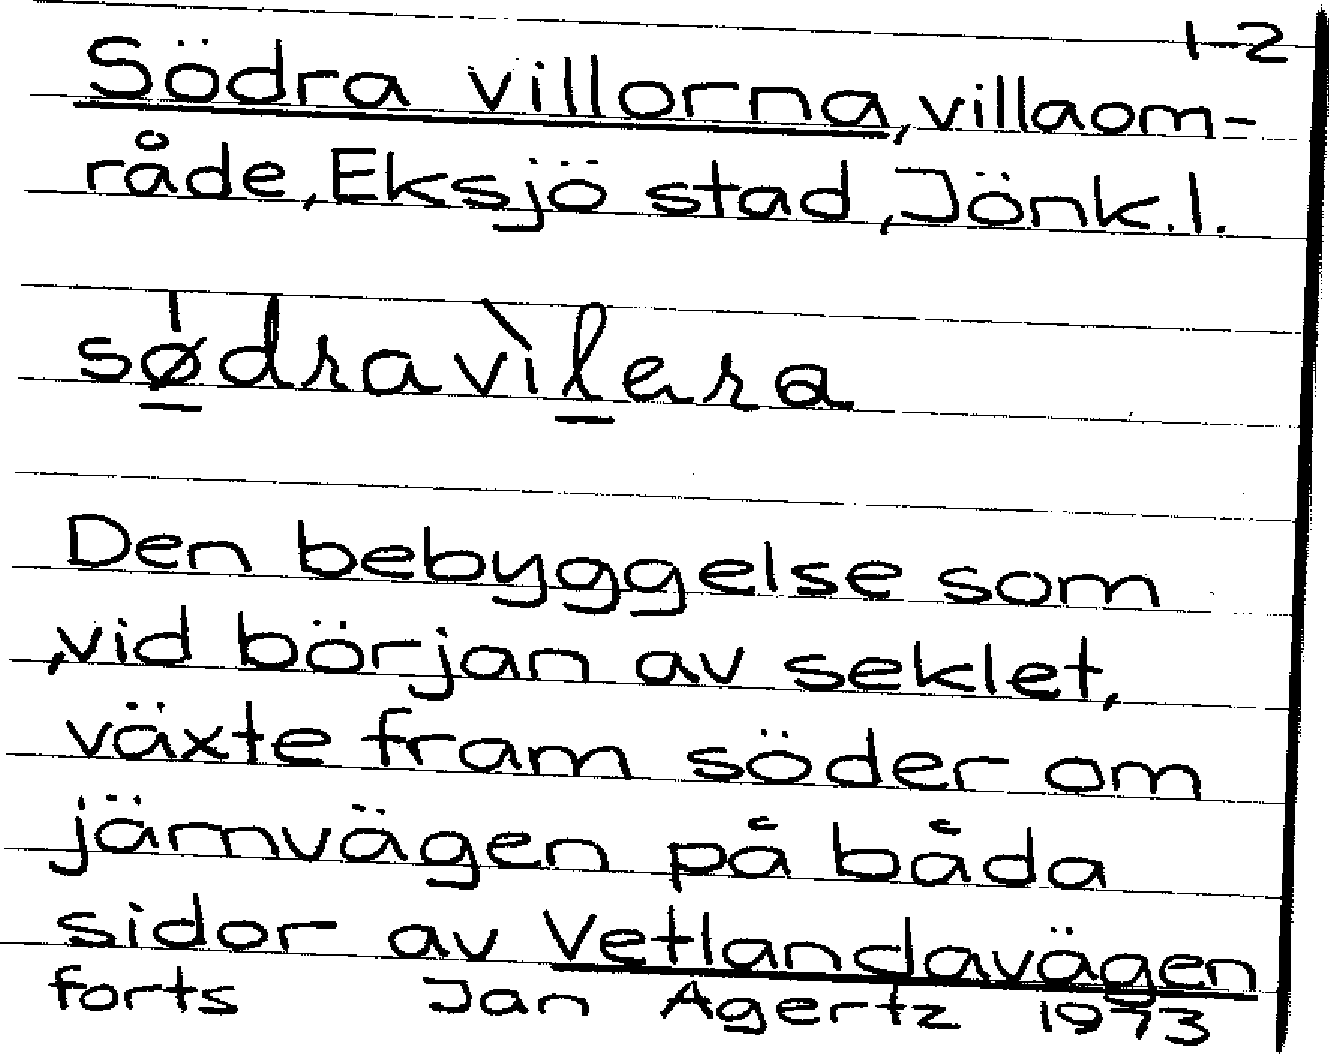 1-2
Södra villorna, villaom-
råde, Eksjö stad, Jönk.l.
sødravìlera
Den bebyggelse som
,vid början av seklet,
växte fram söder om
järnvägen på båda
sidor av Vetlandavägen
forts Jan Agertz 1973